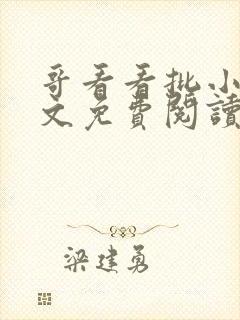 哥看看批小
文免費閱讀
梁建勇